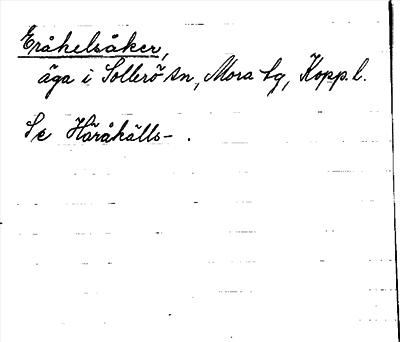 Eråhelsåker,
äga i Sollerö sn, Mora tg, Kopp. l.
Se Håråhälls- .